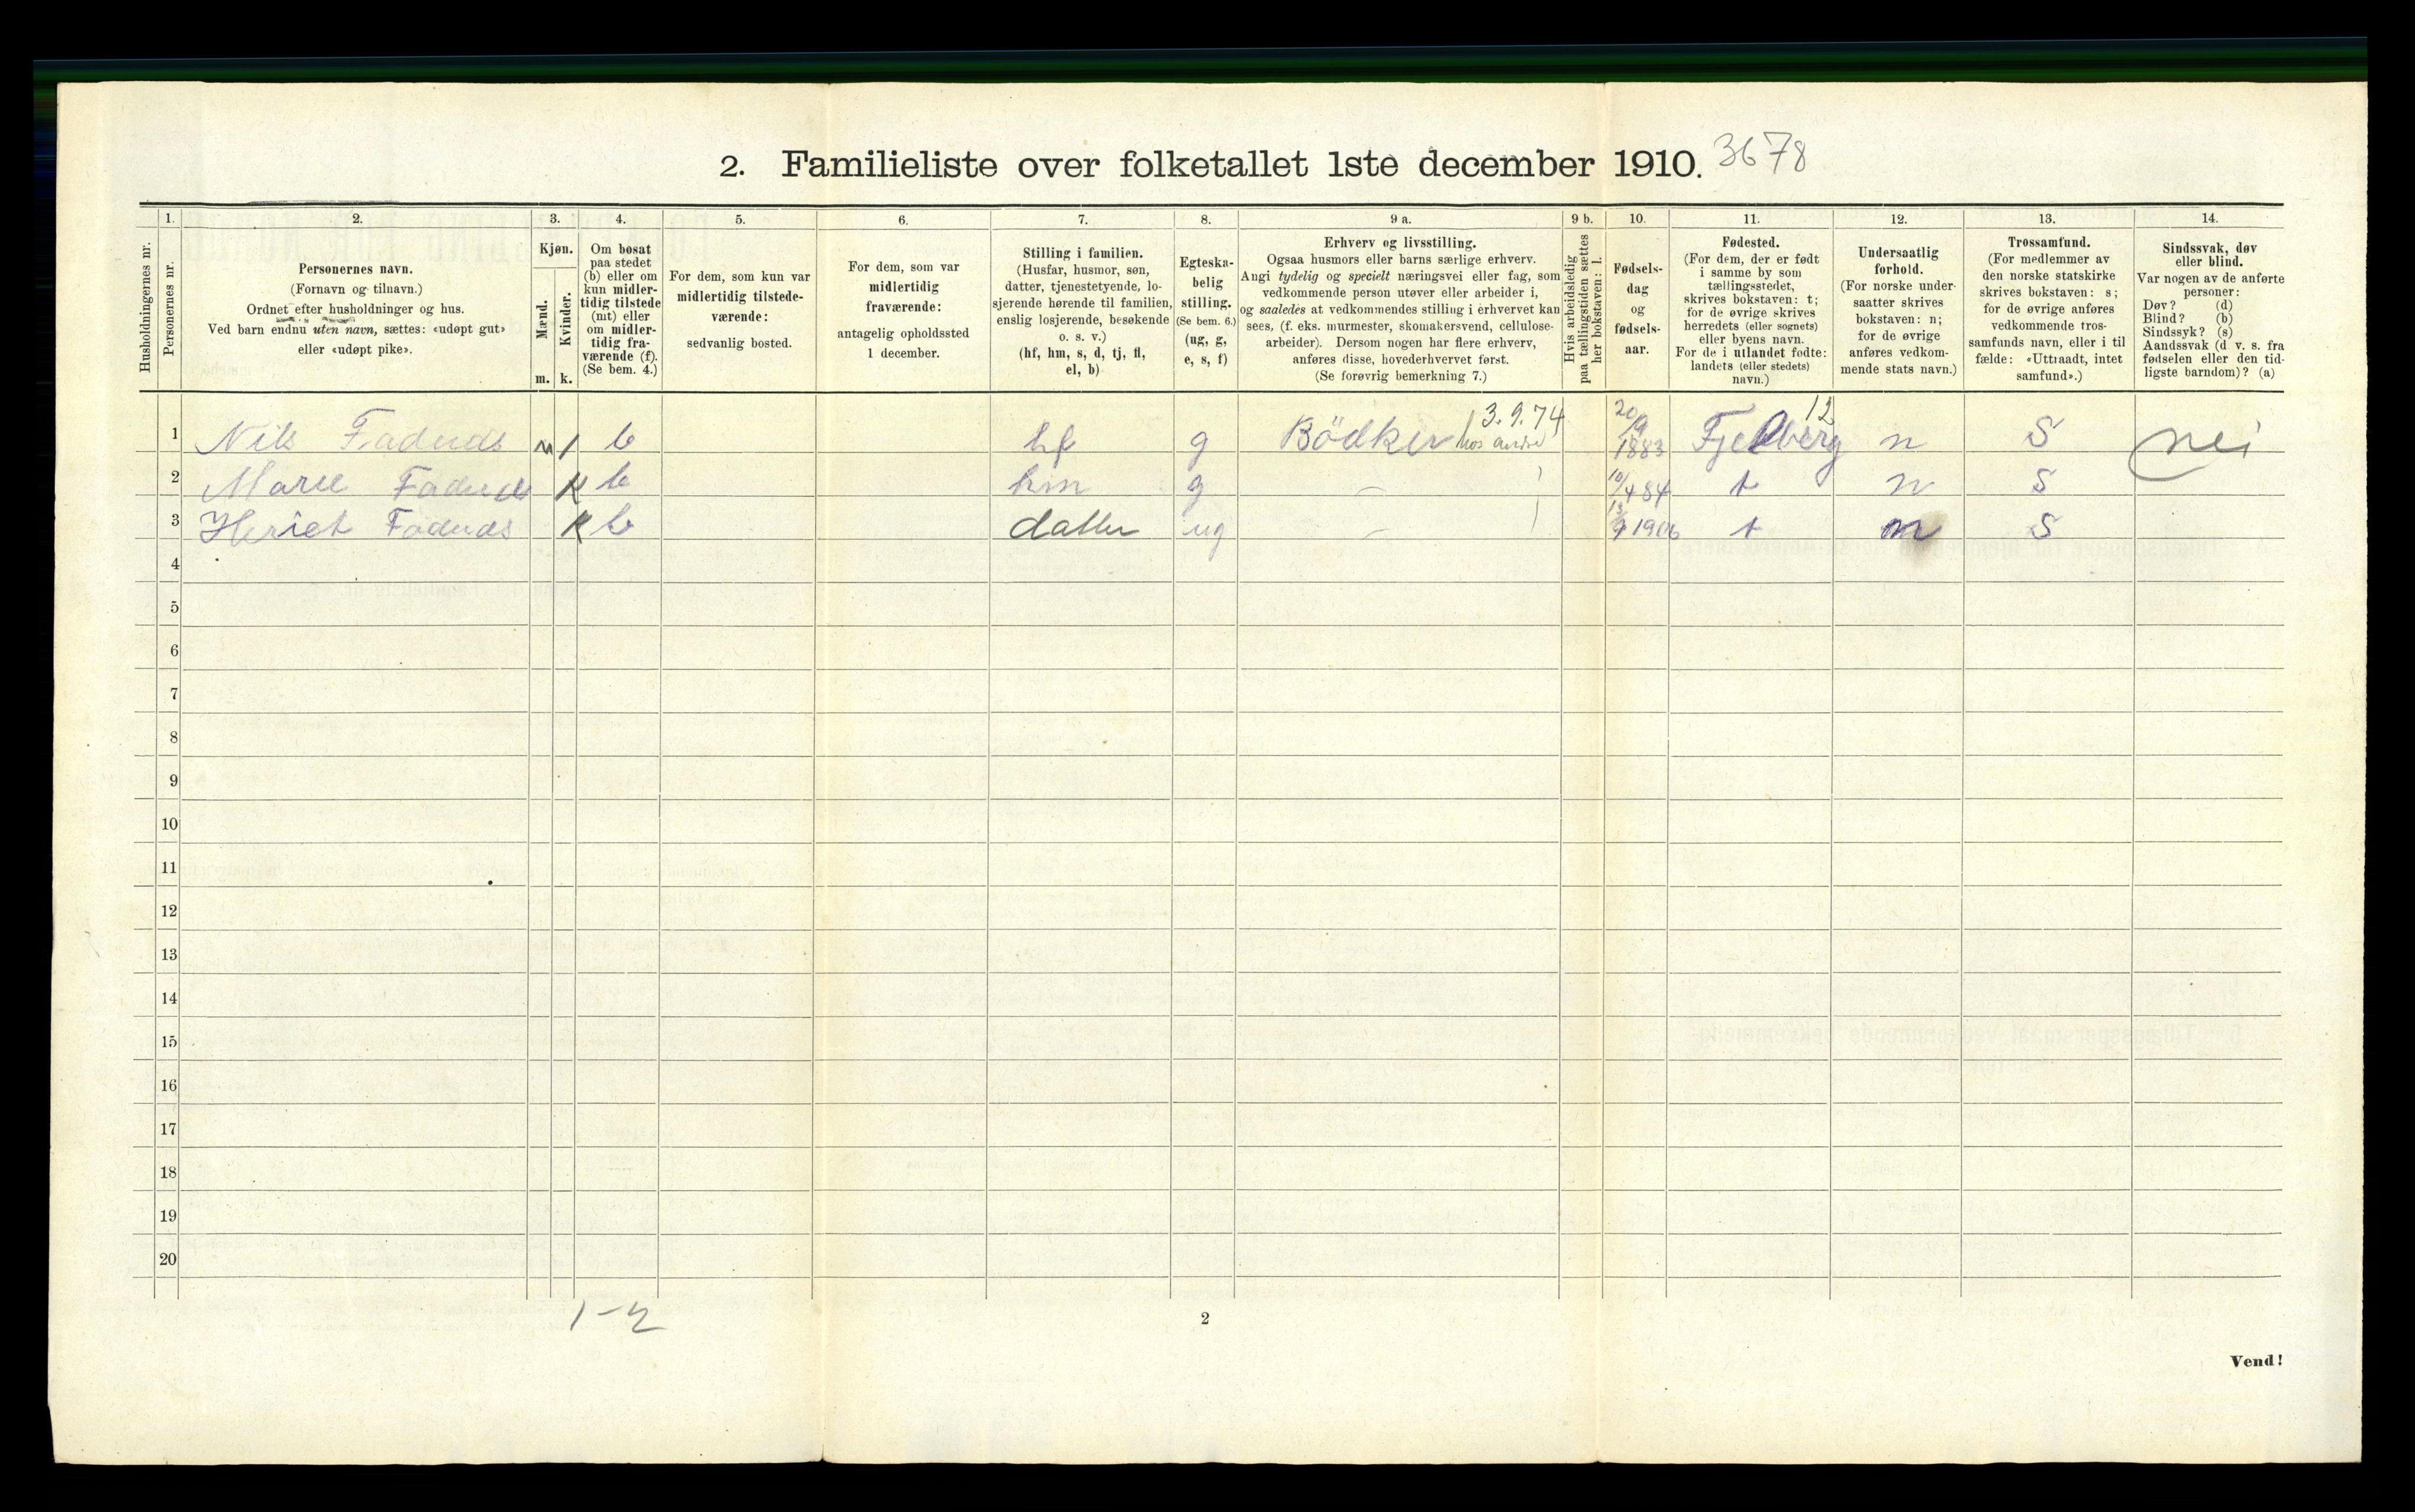 2. Familieliste over folketallet 1ste december 1910. 3678
Husholdningernes nr.
1.
Personernes nr.
2.
Personernes navn.
(Fornavn og tilnavn.)
Ordnet efter husholdninger og hus.
Ved barn endnu uten navn, sættes: «udøpt gut»
eller «udøpt pike».
3.
Kjøn.
Mænd.
m.
Kvinder.
k.
4.
Om bosat
paa stedet
(b) eller om
kun midler-
tidig tilstede
(mt) eller
om midler-
tidig fra-
værende (f).
(Se bem. 4.)
5.
For dem, som kun var
midlertidig tilstede-
værende:
sedvanlig bosted.
6.
For dem, som var
midlertidig
fraværende:
antagelig opholdssted
1 december.
7.
Stilling i familien.
(Husfar, husmor, søn,
datter, tjenestetyende, lo-
sjerende hørende til familien,
enslig losjerende, besøkende
o. s. v.)
(hf, hm, s, d, tj, fl,
el, b)
8.
Egteska-
belig
stilling.
(Se bem. 6.)
(ug, g,
e, s, f)
9 a.
Erhverv og livsstilling.
Ogsaa husmors eller barns særlige erhverv.
Angi tydelig og specielt næringsvei eller fag, som
vedkommende person utøver eller arbeider i,
og saaledes at vedkommendes stilling i erhvervet kan
sees, (f. eks. murmester, skomakersvend, cellulose-
arbeider). Dersom nogen har flere erhverv,
anføres disse, hovederhvervet først.
(Se forøvrig bemerkning 7.)
9 b.
Hvis arbeidsledig
paa tællingstiden sættes
her bokstaven: l.
10.
Fødsels-
dag
og
fødsels-
aar.
11.
Fødested.
(For dem, der er født
i samme by som
tællingsstedet,
skrives bokstaven: t;
for de øvrige skrives
herredets (eller sognets)
eller byens navn.
For de i utlandet fødte:
landets (eller stedets)
navn.)
12.
Undersaatlig
forhold.
(For norske under-
saatter skrives
bokstaven: n;
for de øvrige
anføres vedkom-
mende stats navn.)
13.
Trossamfund.
(For medlemmer av
den norske statskirke
skrives bokstaven: s;
for de øvrige anføres
vedkommende tros-
samfunds navn, eller i til
fælde: «Uttraadt, intet
samfund».)
14.
Sindssvak, døv
eller blind.
Var nogen av de anførte
personer:
Døv? (d)
Blind? (b)
Sindssyk? (s)
Aandssvak (d. v. s. fra
fødselen eller den tid-
ligste barndom)? (a)
3.9.74 12
1 Nils Fadnæs m 1 b hf g Bödker hos andre 20/9 1883 Fjelberg n S nei
2 Marie Fadnæs k b hm g – 10/4 84 t n S
3 k b datter ug – 13/9 1906 t n S
4
5
6
7
8
9
10
11
12
13
14
15
16
17
18
19
20
1-2
2
Vend!